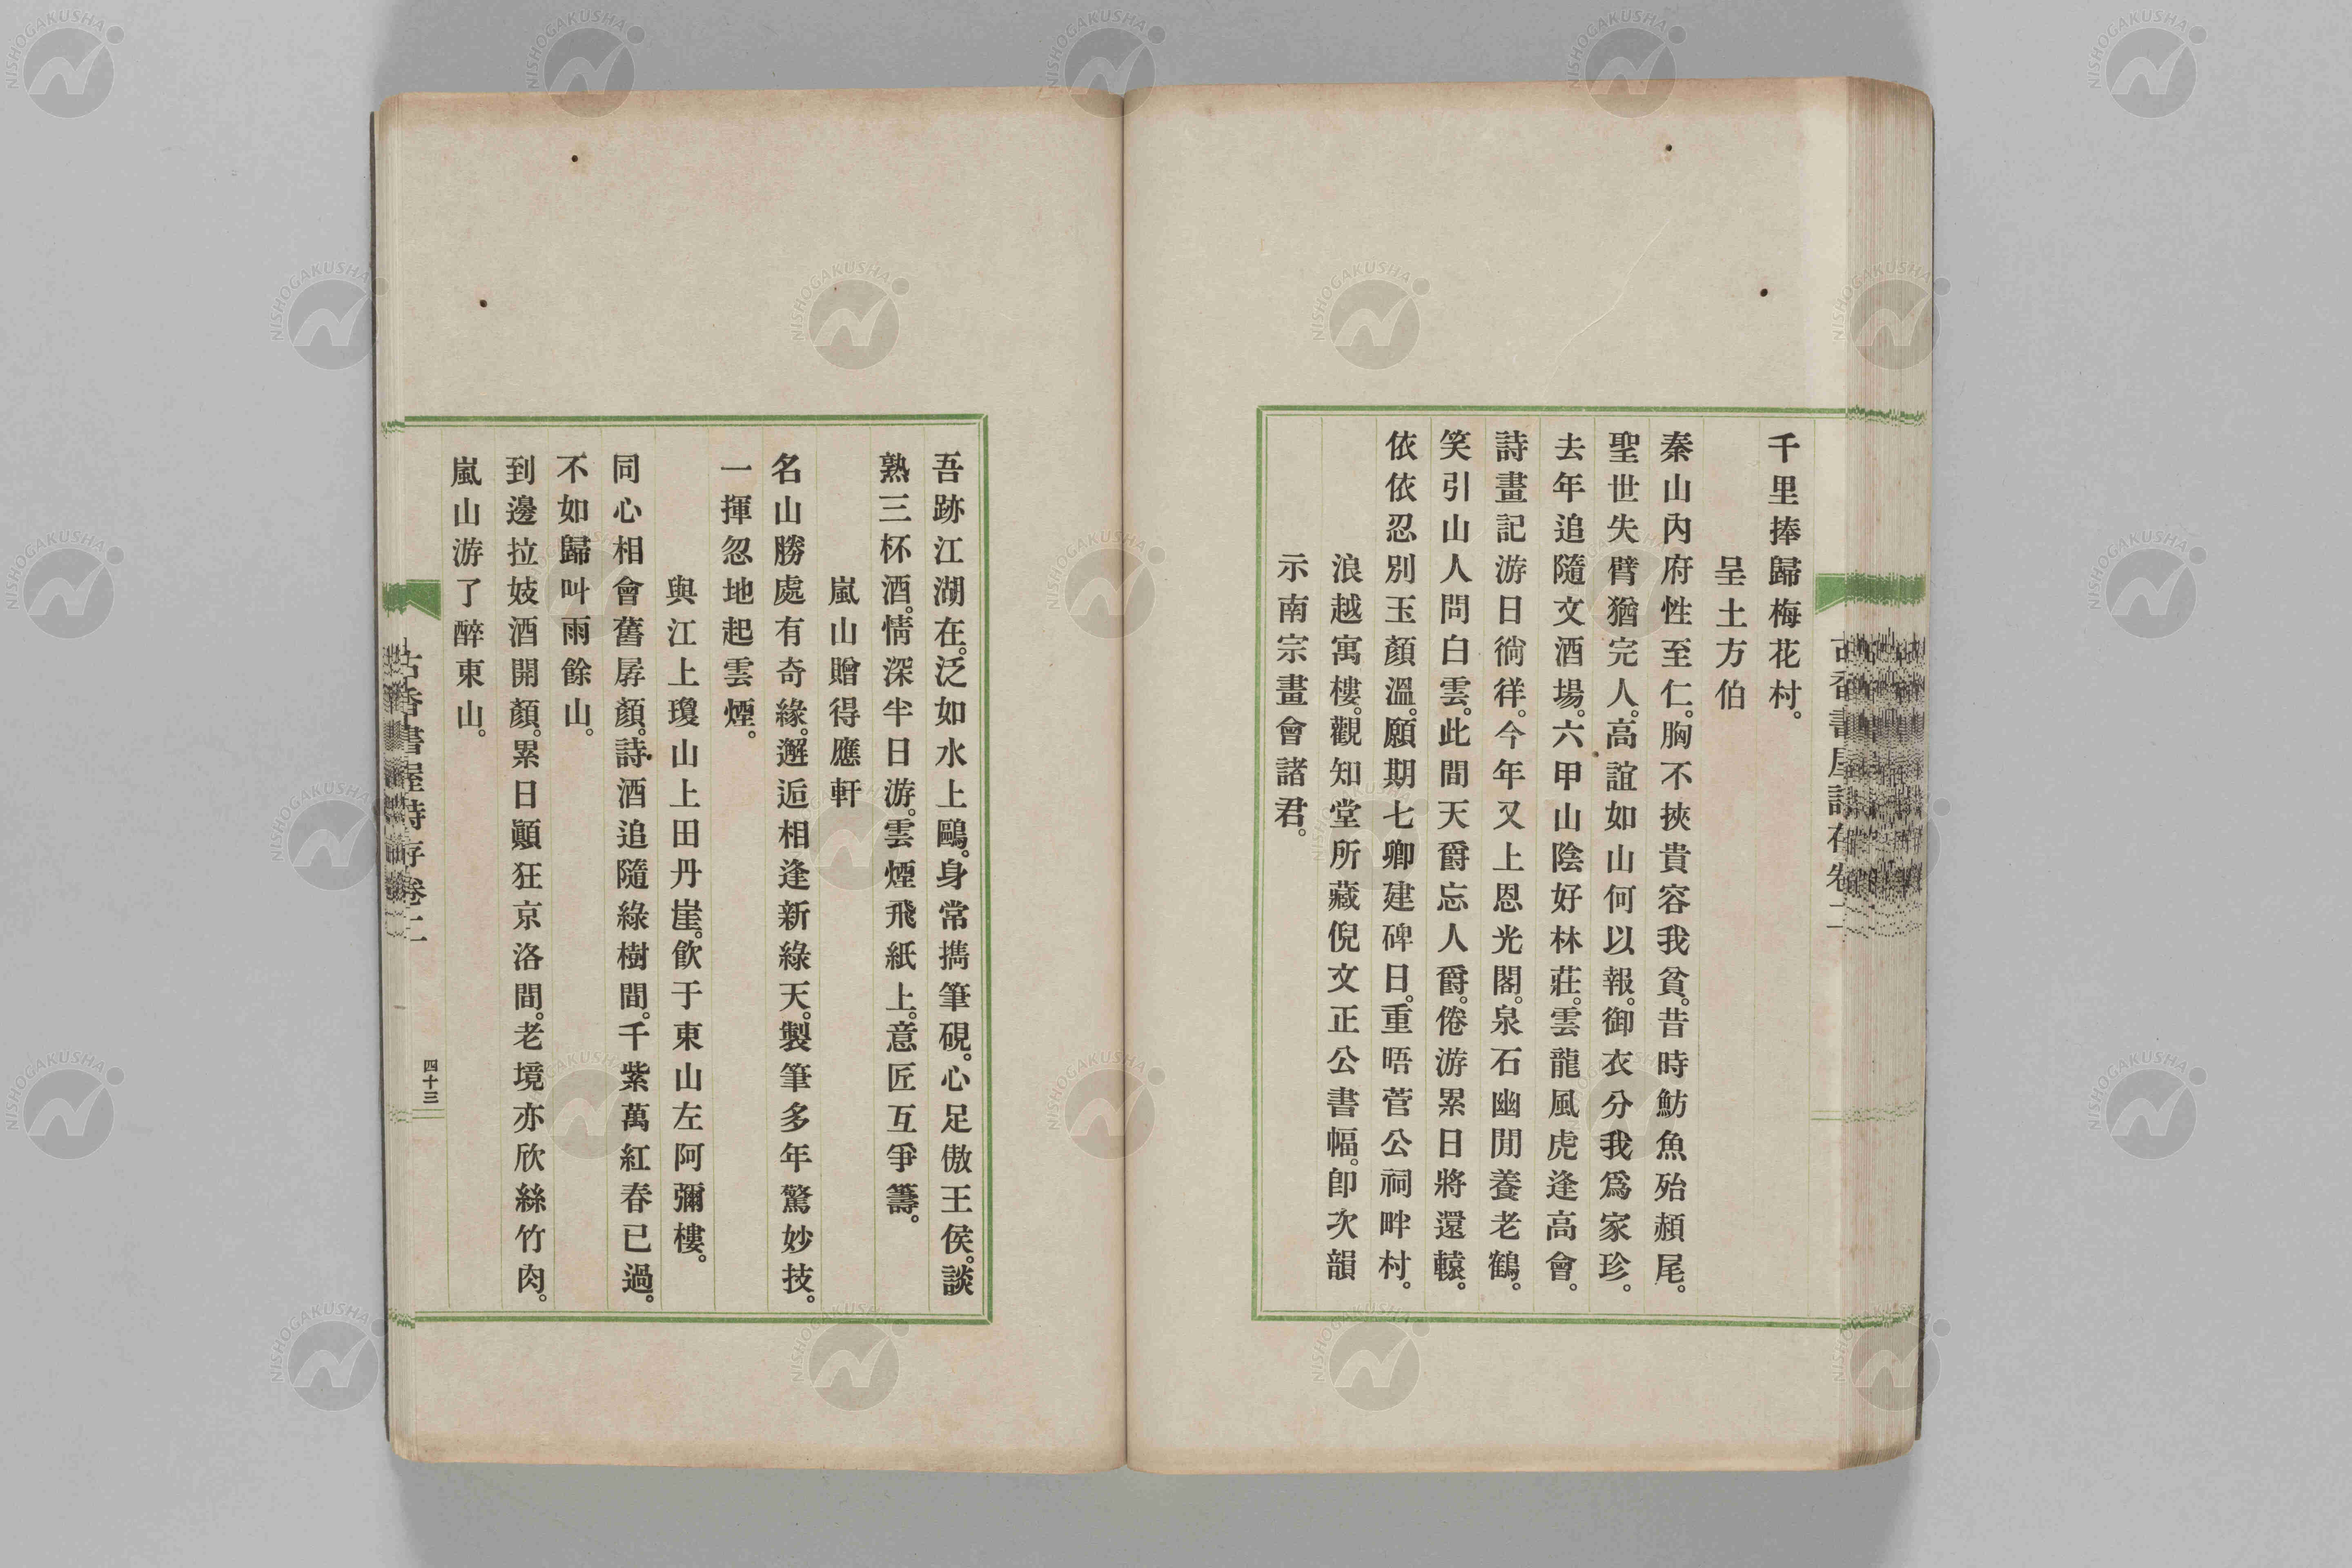 千里捧歸梅花村。
呈土方伯
秦山內府性至仁。胸不挾貴容我貧。昔時魴魚殆赬尾。
聖世失臂猶完人。高誼如山何以報。御衣分我爲家珍。
去年追隨文酒場。六甲山陰好林莊。雲龍風虎逢高會。
詩畫記游日徜徉。今年又上恩光閣。泉石幽閒養老鶴。
笑引山人問白雲。此間天爵忘人爵。倦游累日將還轅。
依依忍別玉顏溫。願期七卿建碑日。重晤菅公祠畔村。
浪越寓樓。觀知堂所藏倪文正公書幅。卽次韻
示南宗畫會諸君。
古香書屋詩存卷二
吾跡江湖在。泛如水上鷗。身常擕筆硯。心足傲王侯。談
熟三杯酒。情深半日游。雲煙飛紙上。意匠互爭籌。
嵐山贈得應軒
名山勝處有奇緣。邂逅相逢新綠天。製筆多年驚妙技。
一揮忽地起雲煙。
與江上瓊山上田丹崖。飮于東山左阿彌樓。
同心相會舊孱顏。詩酒追隨綠樹間。千紫萬紅春已過。
不如歸叫雨餘山。
到邊拉妓酒開顏。累日顚狂京洛間。老境亦欣絲竹肉。
嵐山游了醉東山。
古香書屋詩存卷二
四十三
NISHOGAKUSHA